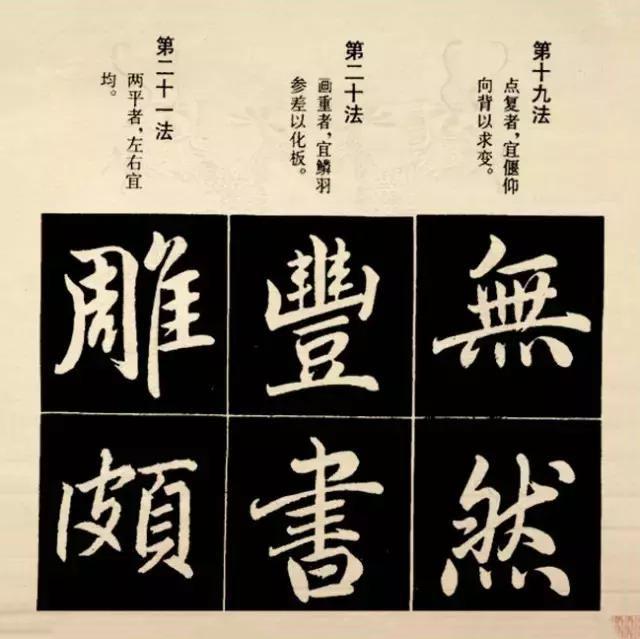 第十九法
点复者，宜偃仰
向背以求变。
無
然
第二十法
画重者，宜鳞羽
参差以化板。
豐
書
第二十一法
两平者，左右宜
均。
雕
頗